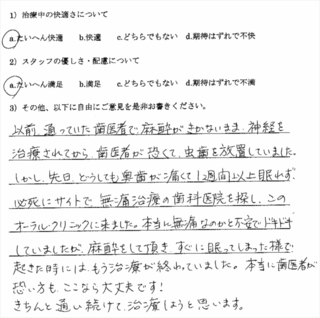 1）治療中の快適さについて
a.たいへん快適 b.快適 c.どちらでもない d.期待はずれで不快
2）スタッフの優しさ・配慮について
a.たいへん満足 b.満足 c.どちらでもない d.期待はずれで不満
3）その他、以下に自由にご意見を是非お書きください。
以前、通っていた歯医者で、麻酔がきかないまま、神経を
治療されてから、歯医者が恐くて、虫歯を放置していました。
しかし、先日、どうしても奥歯が痛くて1週間以上眠れず
必死にサイトで、無痛治療の歯科医院を探し、この
オーラルクリニックに来ました。本当に無痛なのかと不安でドキドキ
していましたが、麻酔をして頂き、すぐに眠ってしまった様で
起きた時には、もう治療が終わっていました。本当に歯医者が
恐い方も、ここなら大丈夫です!
きちんと通い続けて、治療しようと思います。